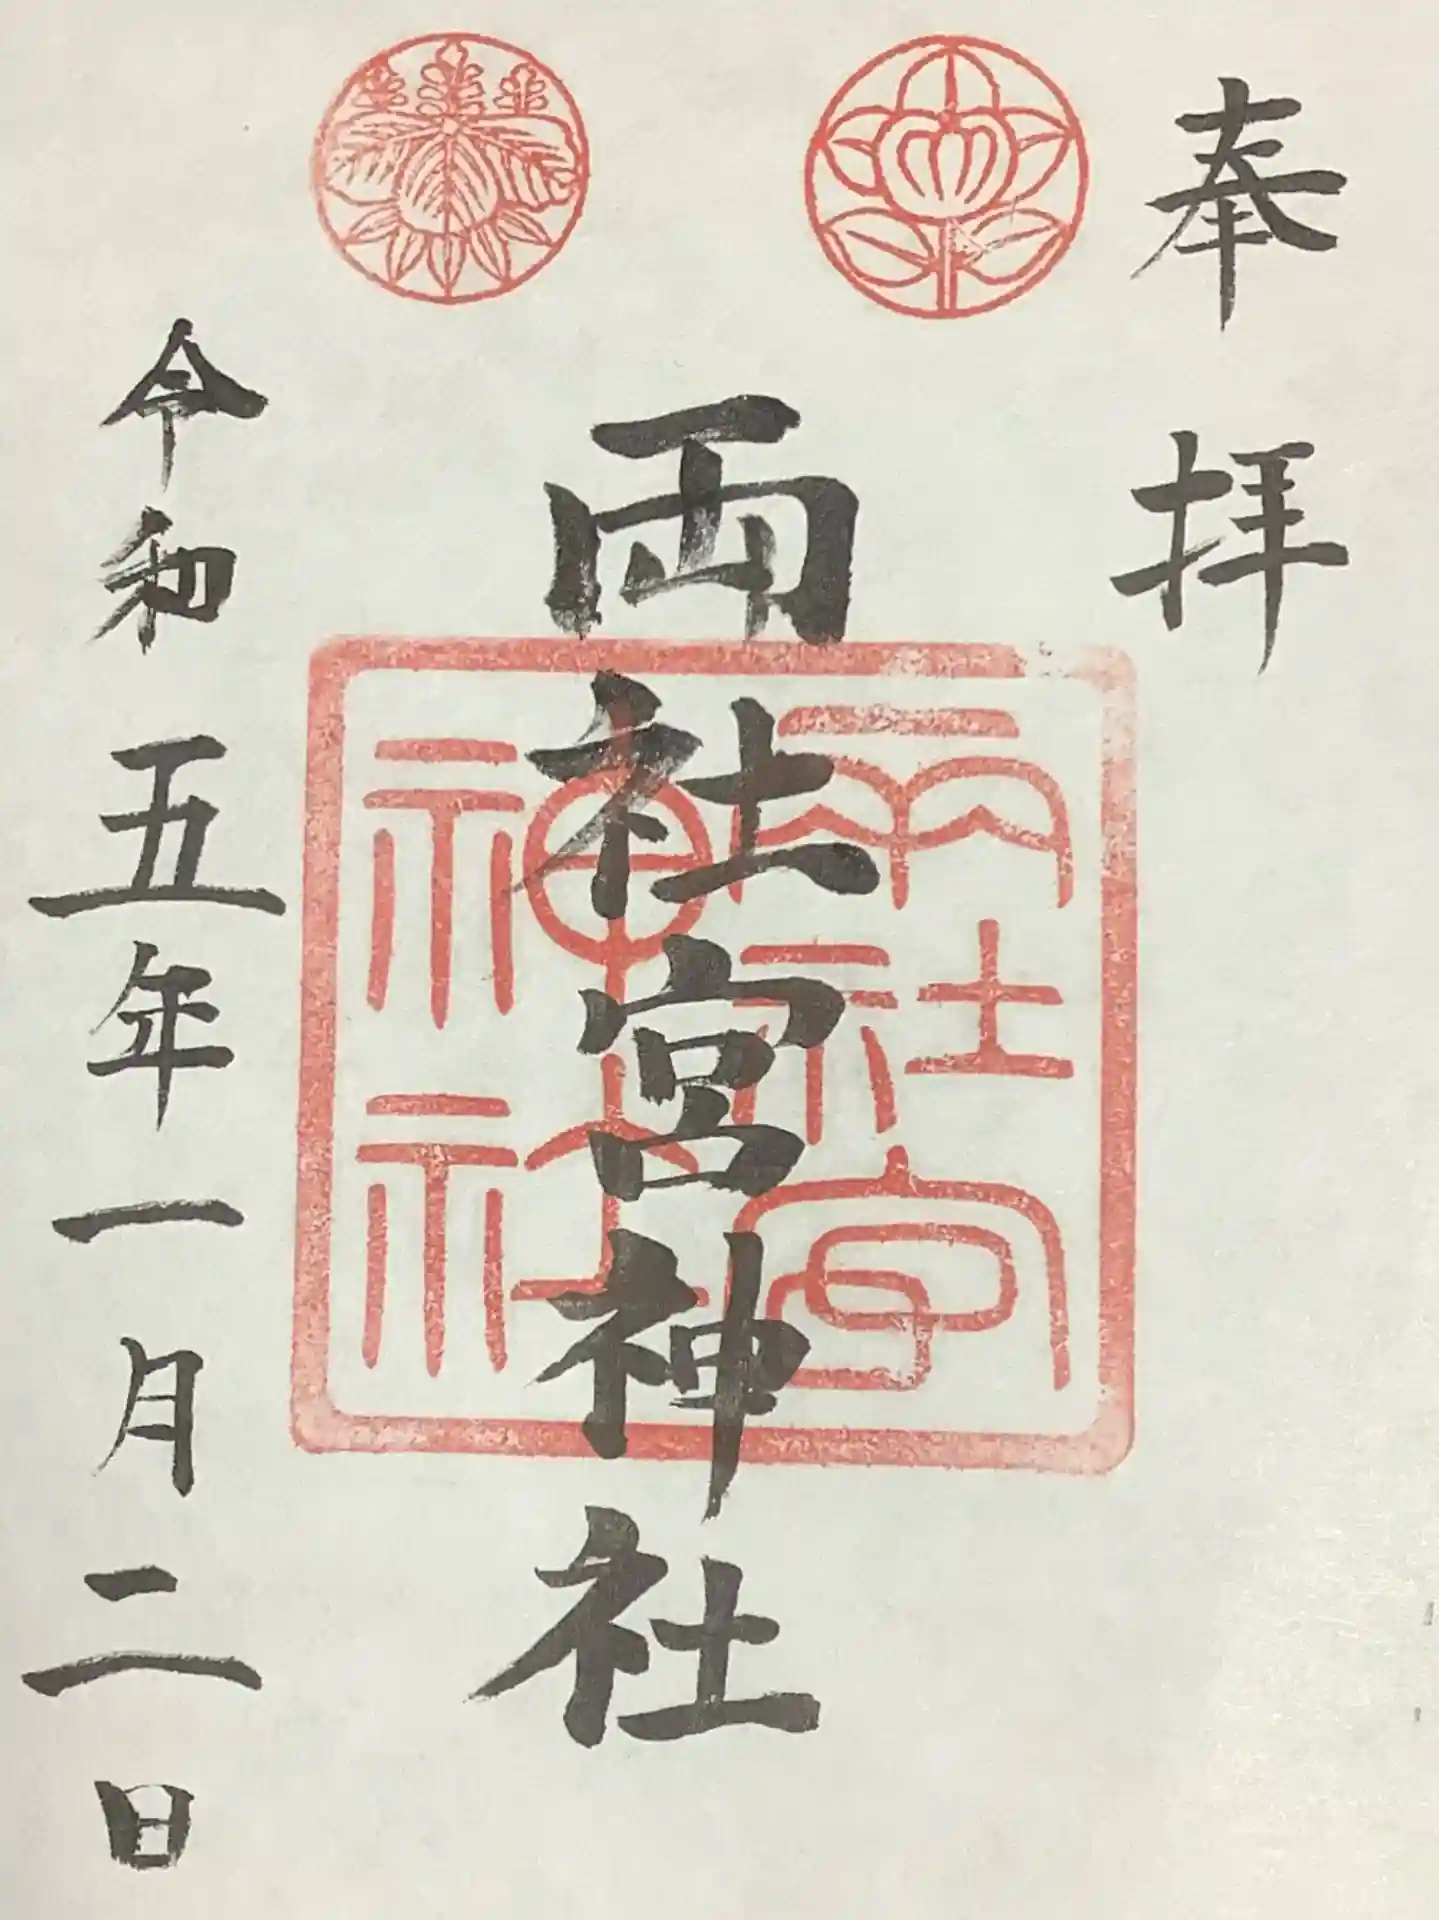 奉拝
両社宮神社
両社宮
神社
令和五年一月二日